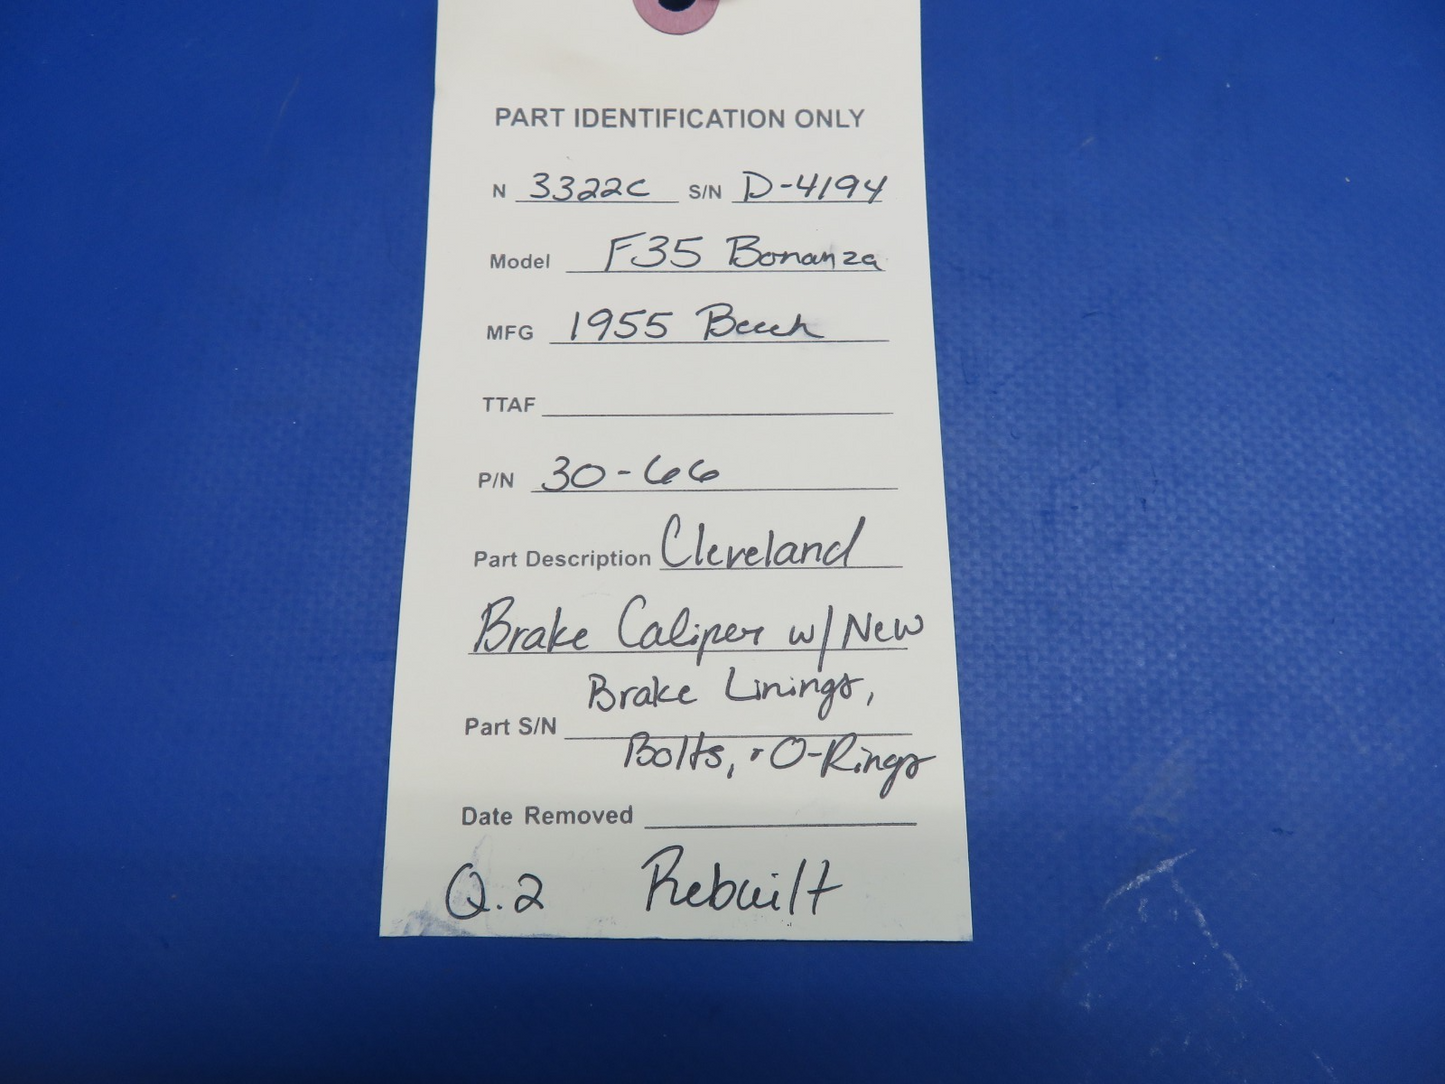 PART IDENTIFICATION ONLY
N 3322C S/N D-4194
Model F35 Bonanza
MFG 1955 Beech
TTAF
P/N 30-66
Part Description Cleveland
Brake Caliper w/New
Brake Linings,
Part S/N
Bolts, + O-Rings
Date Removed
Q.2 Rebuilt